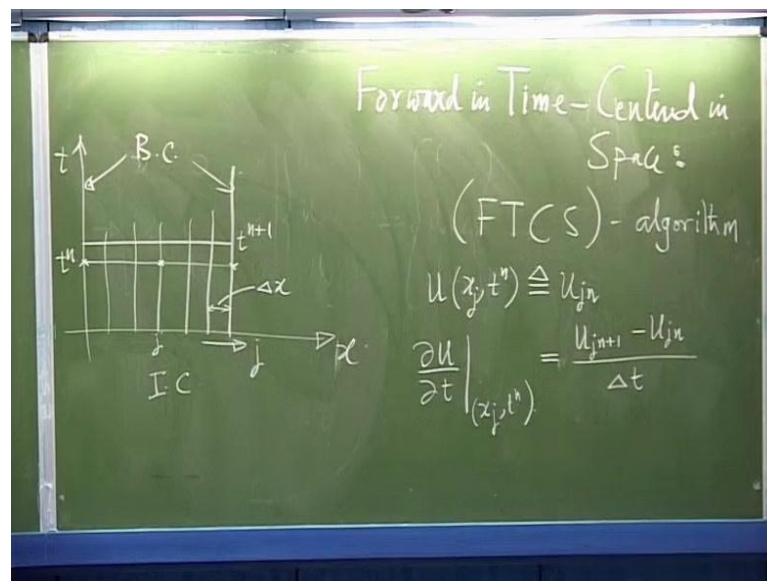 Forward in Time - Centred in
Space:
(FTCS) - algorithm
u(x_j, t^n) ≜ u_{jn}
∂u/∂t |_(x_j, t^n) = (u_{jn+1} - u_{jn}) / Δt
t
B.C.
t^{n+1}
t^n
Δx
j
j
x
I.C